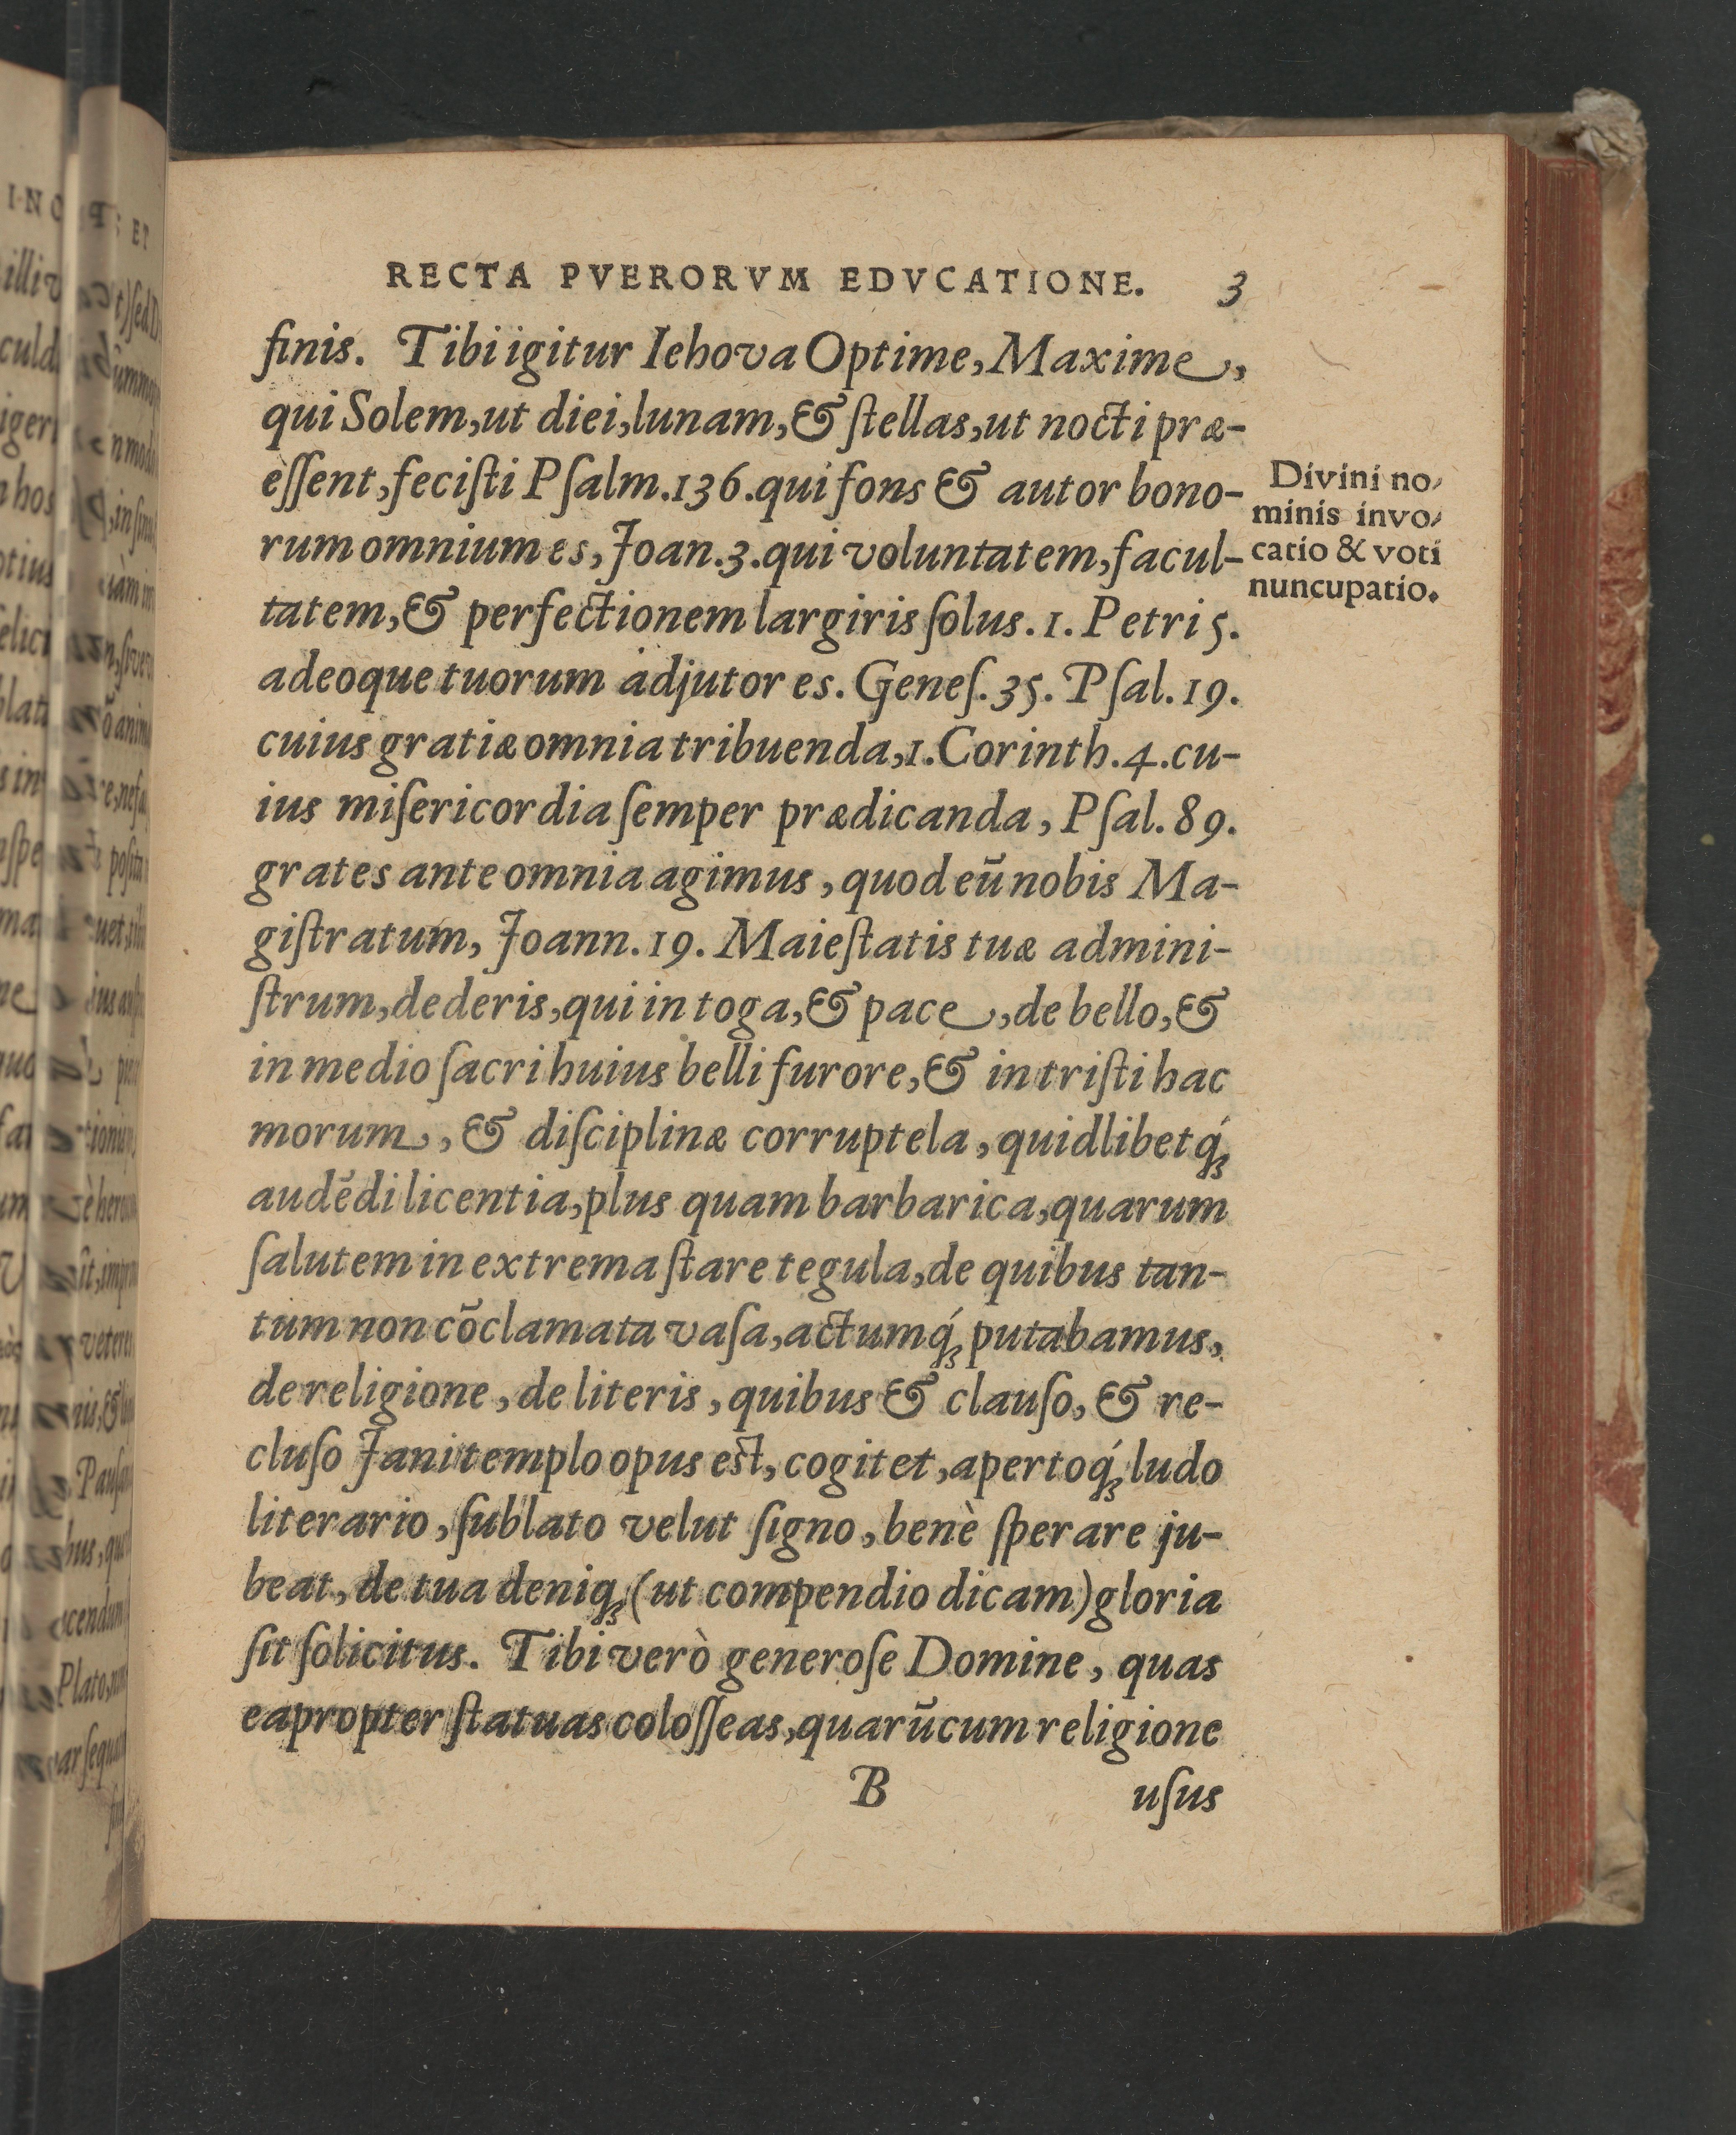 RECTA PVERORVM EDVCATIONE. 3
finis. Tibi igitur Iehova Optime, Maxime,
qui Solem, ut diei, lunam, & ſtellas, ut nocti præ-
eſſent, feciſti Pſalm. 136. qui fons & autor bono-
rum omnium es, Joan. 3. qui voluntatem, facul-
tatem, & perfectionem largiris ſolus. 1. Petri 5.
adeoque tuorum adjutor es. Geneſ. 35. Pſal. 19.
cuius gratiæ omnia tribuenda, 1. Corinth. 4. cu-
ius miſericordia ſemper prædicanda, Pſal. 89.
grates ante omnia agimus, quod eū nobis Ma-
giſtratum, Joann. 19. Maieſtatis tuæ admini-
ſtrum, dederis, qui in toga, & pace, de bello, &
in medio ſacri huius belli furore, & in triſti hac
morum, & diſciplinæ corruptela, quidlibet q́ꝫ
audēdi licentia, plus quam barbarica, quarum
ſalutem in extrema ſtare tegula, de quibus tan-
tum non cōclamata vaſa, actumq́ꝫ putabamus,
de religione, de literis, quibus & clauſo, & re-
cluſo Jani templo opus eſt, cogitet, apertoq́ꝫ ludo
literario, ſublato velut ſigno, benè ſperare ju-
beat, de tua deniqꝫ (ut compendio dicam) gloria
ſit ſolicitus. Tibi verò generoſe Domine, quas
eapropter ſtatuas coloſſeas, quarūcum religione
B uſus
Divini no-
minis invo-
catio & voti
nuncupatio.